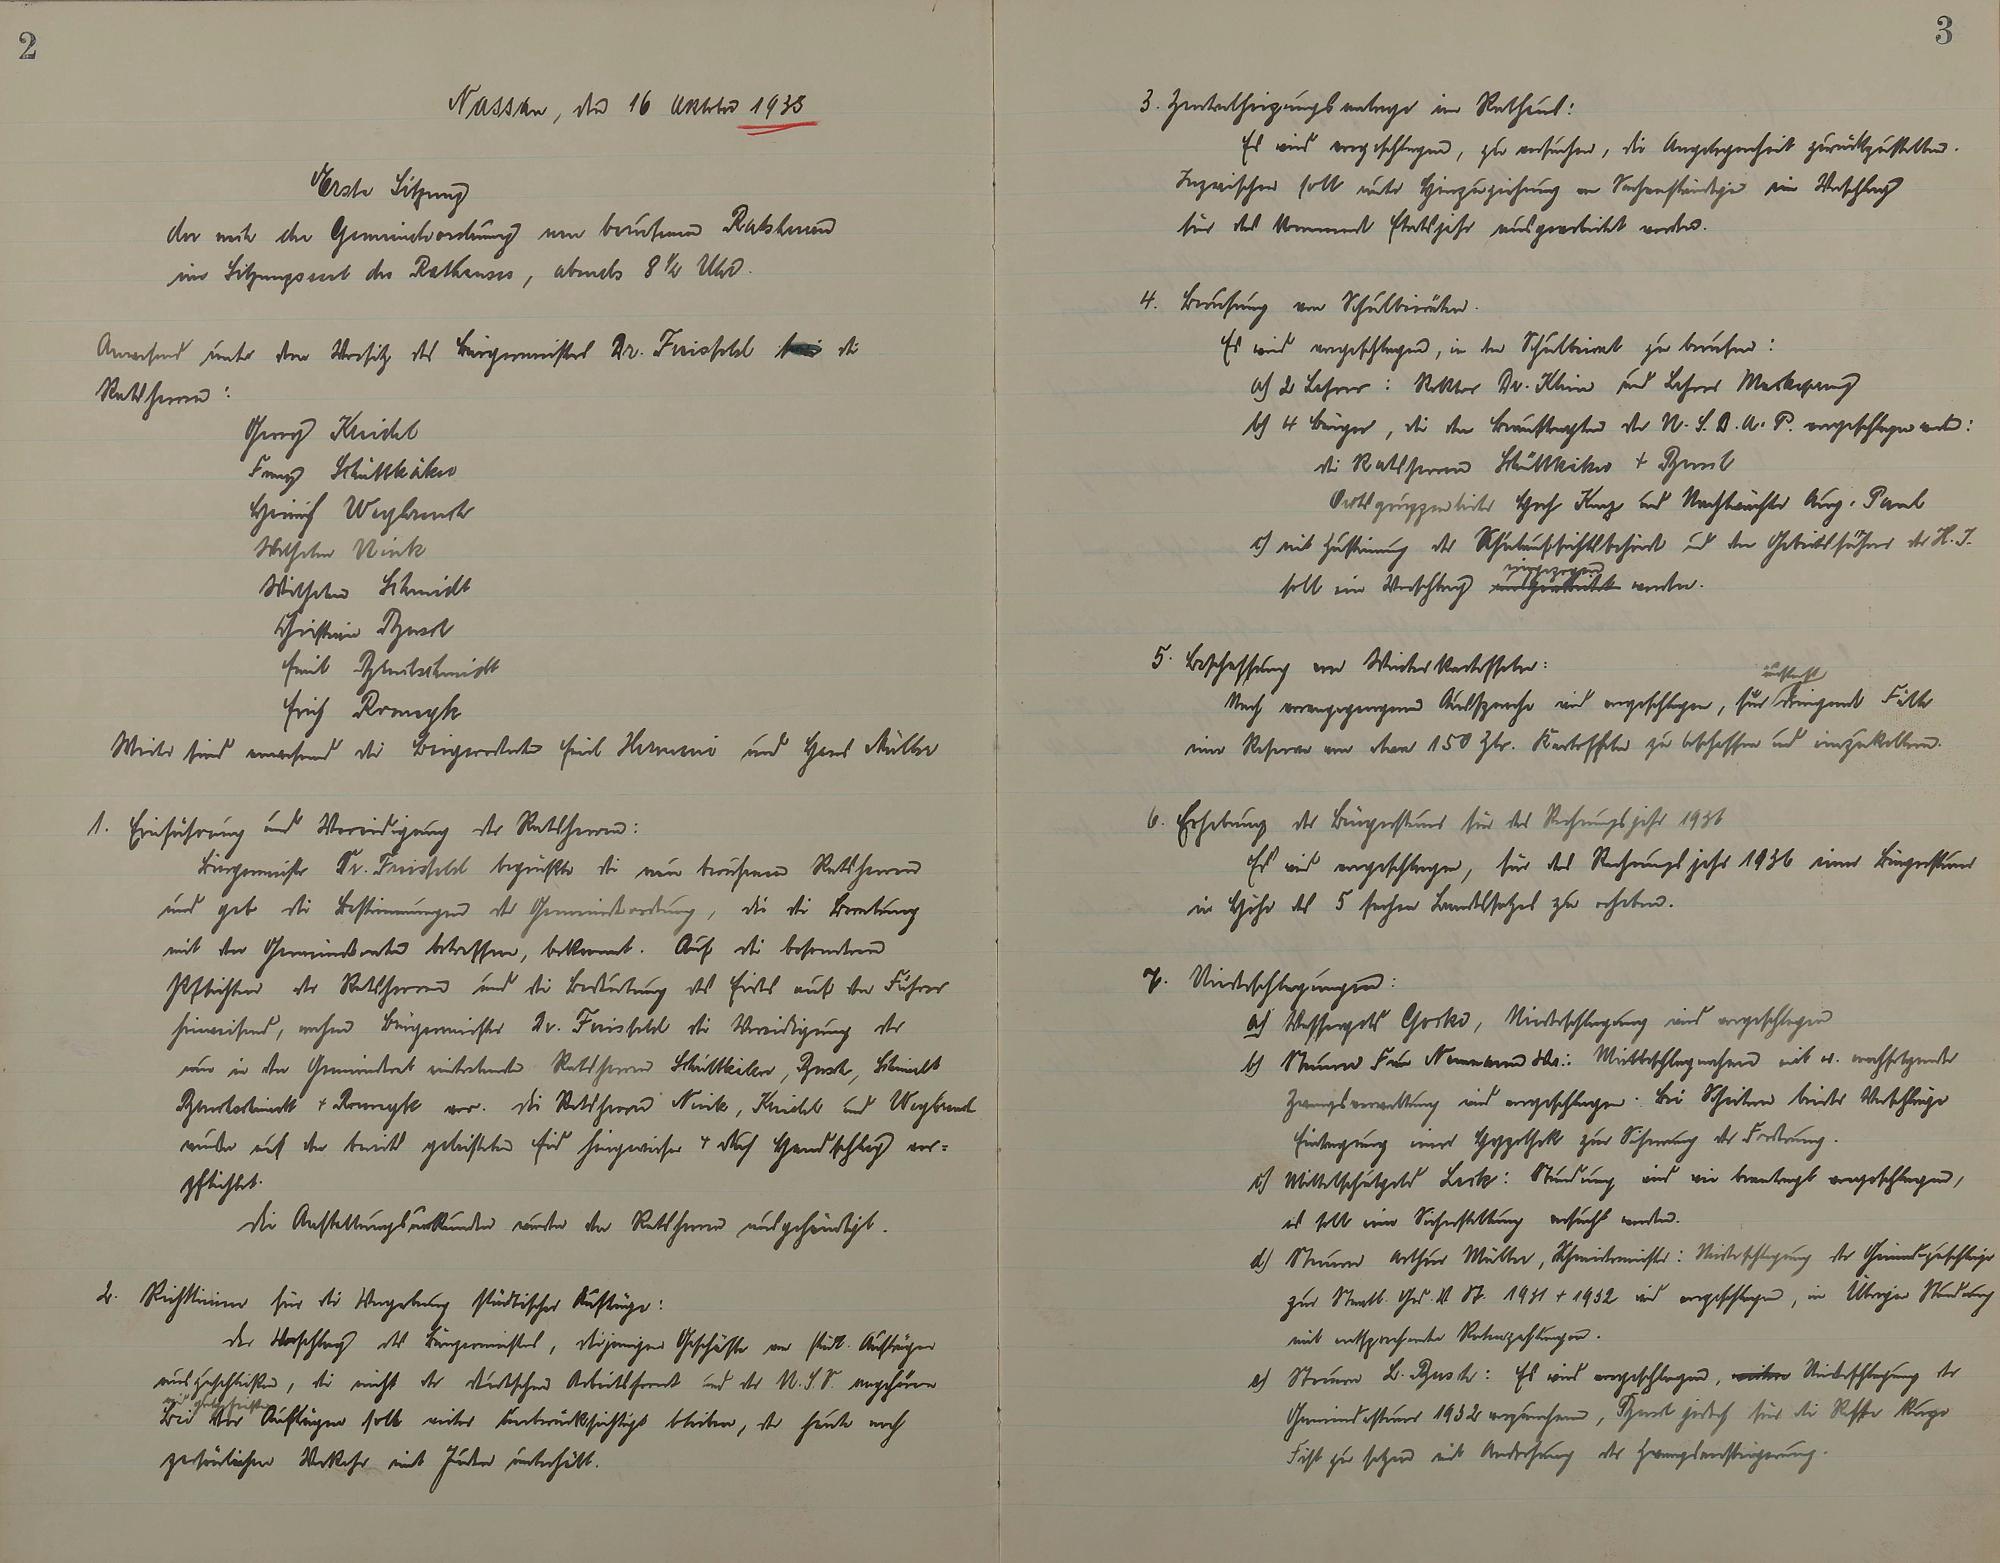 2
Nassau, den 16 Oktober 1935
Erste Sitzung
der nach der Gemeindeordnung neu berufenen Ratsherren
im Sitzungssaal des Rathauses, abends 8 1/2 Uhr.
Anwesend unter dem Vorsitz des Bürgermeisters Dr. Freisfeld die
Ratsherren:
Georg Kneidel
Franz Schüttkäker
Heinrich Weglandt
Wilhelm Nink
Wilhelm Schmidt
Christian Busch
Emil
Erich
Weiter sind anwesend die Beigeordneten Emil Hermani und Hans Müller
1. Einführung und Vereidigung der Ratsherren:
Bürgermeister Dr. Freisfeld begrüßte die neu berufenen Ratsherren
und gab die Bestimmungen der Gemeindeordnung, die die Beratung
mit den Gemeinderäten betreffen, bekannt. Auf die besonderen
Pflichten der Ratsherren und die Bedeutung des Eides auf den Führer
hinweisend, nahm Bürgermeister Dr. Freisfeld die Vereidigung der
neu in den Gemeinderat eintretenden Ratsherren Schüttkäker, Busch, Schmidt
+ vor. Die Ratsherren Nink, Kneidel und Weglandt
wurden auf den bereits geleisteten Eid hingewiesen + durch Handschlag ver=
pflichtet.
Die Anstellungsurkunden wurden den Ratsherren ausgehändigt.
2. Richtlinien für die Vergebung städtischer Aufträge:
Der Vorschlag des Bürgermeisters, diejenigen Geschäfte von städt. Aufträgen
auszuschließen, die nicht der deutschen Arbeitsfront und der N.S.V. angehören
wird gutgeheißen
Bei den Aufträgen soll weiter unberücksichtigt bleiben, der heute noch
persönlichen Verkehr mit Juden unterhält.
3
3. Zentralheizungsanlage im Rathaus:
Es wird vorgeschlagen, zu versuchen, die Angelegenheit zurückzustellen.
Inzwischen soll unter Hinzuziehung von Sachverständigen ein Vorschlag
für das kommende Etatsjahr ausgearbeitet werden.
4. Berufung von Schulbeiräten.
Es wird vorgeschlagen, in den Schulbeirat zu berufen:
a) 2 Lehrer: Rektor Dr. Klein und Lehrer
b) 4 Bürger, die vom Beauftragten der N.S.D.A.P. vorgeschlagen werden:
die Ratsherren Schüttkäker + Busch
Ortsgruppenleiter Hch Kurz und Nachtwächter Aug. Paul
c) mit Zustimmung der Schulaufsichtsbehörde und dem Gebietsführer der H.J.
eingezogen
soll ein Vorschlag ausgearbeitet werden.
5. Beschaffung von Winterkartoffeln:
Nach vorangegangener Aussprache wird vorgeschlagen, für dringende Fälle
eine Reserve von etwa 150 Ztr. Kartoffeln zu beschaffen und einzukellern.
6. Erhebung der Bürgersteuer für das Rechnungsjahr 1936
Es wird vorgeschlagen, für das Rechnungsjahr 1936 eine Bürgersteuer
in Höhe des 5 fachen Landessatzes zu erheben.
7. Niederschlagungen:
a) Wassergeld Goske, Niederschlagung wird vorgeschlagen
b) Steuern Frau Naumann Ww.: Mietbeschlagnahme mit nachfolgender
Zwangsverwaltung wird vorgeschlagen. Bei Scheitern beider Vorschläge
Eintragung einer Hypothek zur Sicherung der Forderung.
c) Mittelschulgeld: Stundung wird wie beantragt vorgeschlagen,
es soll eine Sicherstellung versucht werden.
d) Steuern Arthur Müller, Schneidermeister: Niederschlagung der Gemeindezuschläge
zur Staatl. Gr. V. St. 1931 + 1932 wird vorgeschlagen, im Übrigen Stundung
mit entsprechenden Ratenzahlungen.
e) Steuern L. Busch: Es wird vorgeschlagen, Niederschlagung der
Gemeindesteuer 1932 vorzunehmen, Busch jedoch für die Reste kurze
Frist zu setzen mit Androhung der Zwangsversteigerung.